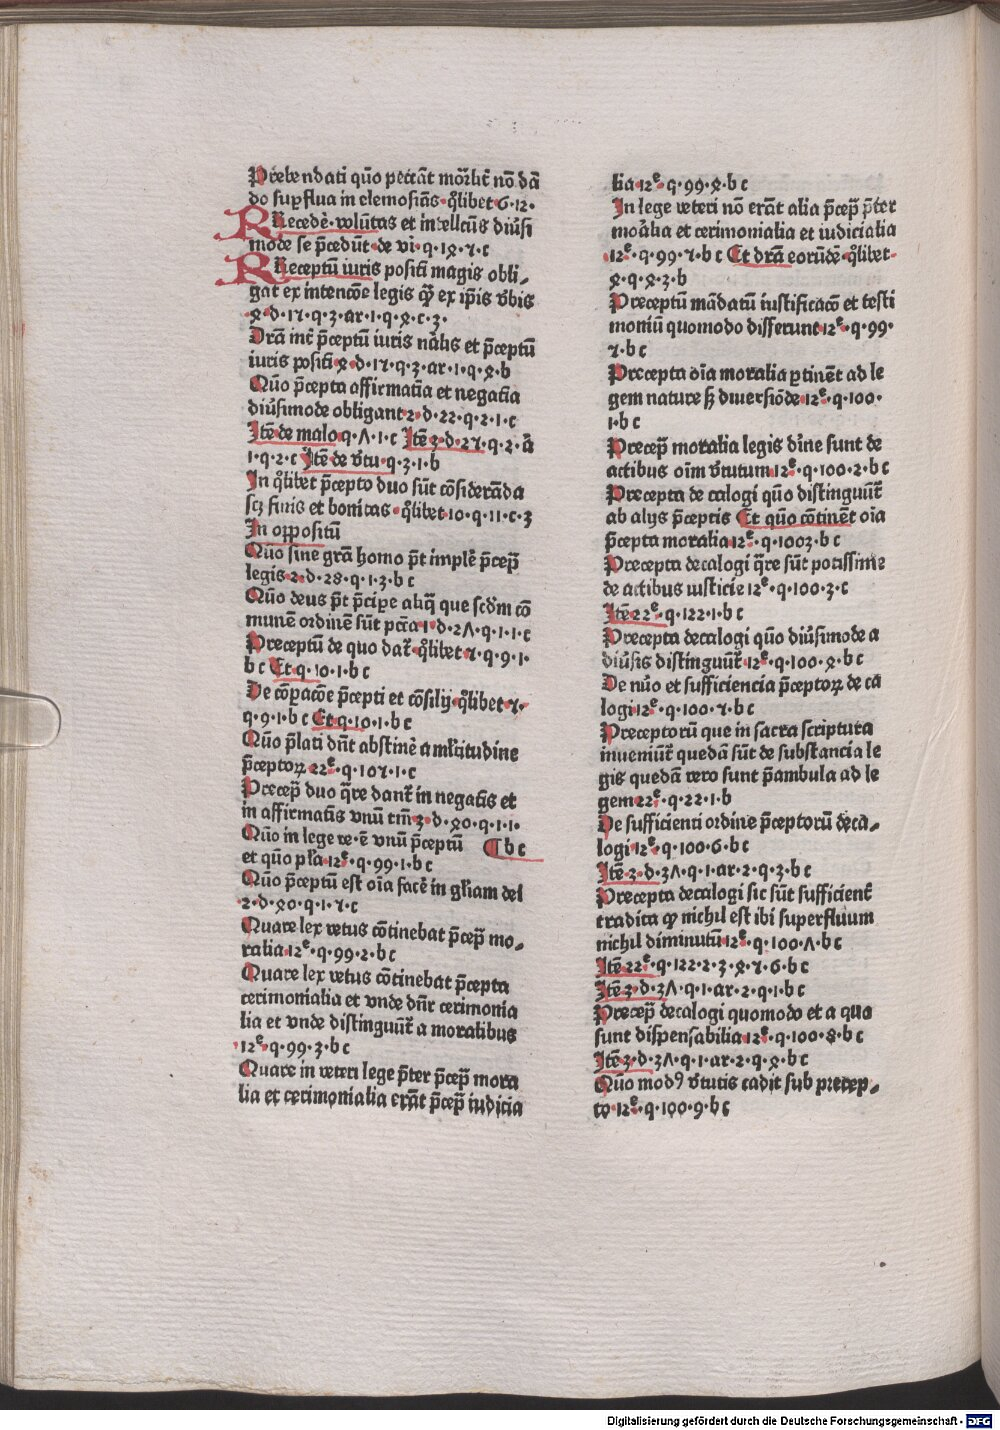 Prebendati quō peccāt mor̄lit̄ nō dā
do suꝑflua in elemosiās·q̄libet·6·12·
Recedē·volūtas et intellcūs diūsi
mode se p̄cedūt·de vī·q·1ꝩ·7·c
Receptū iuris positī magis obli¬
gat ex intencōe legis qꝫ ex ip̄is v̄bis
ꝩ·d·17·q·3·ar·1·q·ꝩ·c·3·
Drām int̄ p̄ceptū iuris nālis et p̄ceptū
iuris positī·ꝩ·d·17·q·3·ar·1·q·ꝩ·b
Quō p̄cepta affirmatīa et negatīa
diūsimode obligant·2·d·22·q·2·1·c
Itē de malo·q·Λ·1·c Itē·3·d·27·q·2·ā
1·q·2·c Itē de v̄tu·q·3·1·b
In q̄libet p̄cepto duo sūt cōsiderāda
scꝫ finis et bonitas·q̄libet·10·q·11·c·3
In oꝑpositū
Quō sine grā homo p̄t implē p̄cep̄
legis·2·d·28·q·1·3·b c
Quō deus p̄t p̄cipe aliq̄ que scd̄m cō
munē ordinē sūt pctā·1·d·2Λ·q·1·1·c
Preceptū de quo dat̄·q̄libet·7·q·9·1·
b c Et q·10·1·b c
De cōꝑacōe p̄cepti et cōsilij·q̄libet·7·
q·9·1·b c Et q·10·1·b c
Quō p̄lati dn̄t abstinē a ml̄titudine
p̄ceptoꝝ·22ͤ·q·107·1·c
Precep̄ duo q̄re dant̄ in negatīs et
in affirmatīs vnū tm̄·3·d·ꝩ0·q·1·1·
Quō in lege ve·ē vnū p̄ceptū ¶ b c
et quō pl̄a·12ͤ·q·99·1·b c
Quō p̄ceptū est oīa facē in gl̄iam dei
2·d·ꝩ0·q·1·7·c
Quare lex vetus cōtinebat p̄cep̄ mo¬
ralia·12ͤ·q·99·2·b c
Quare lex vetus cōtinebat p̄cepta
cerimonialia et vnde dn̄r cerimonia
lia et vnde distinguūt̄ a moralibus
12ͤ·q·99·3·b c
Quare in veteri lege p̄ter p̄cep̄ mora
lia et cerimonialia erāt p̄cep̄ iudicia
lia·12ͤ·q·99·ꝩ·b c
In lege veteri nō erāt alia p̄cep̄ p̄ter
mōalia et cerimonialia et iudicialia
12ͤ·q·99·7·b c Et drām eorūdē·q̄libet·
ꝩ·q·ꝩ·3·b
Preceptū mādatū iustificacō et testi
moniū quomodo differunt·12ͤ·q·99·
7·b c
Precepta oīa moralia ꝑtinēt ad le
gem nature sꝫ diuersiōde·12ͤ·q·100·
1·b c
Precep̄ moralia legis dīne sunt de
actibus oīm v̄tutum·12ͤ·q·100·2·b c
Precepta de calogi quō distinguūt̄
ab alijs p̄ceptis Et quō cōtinēt oīa
p̄cepta moralia·12ͤ·q·1003·b c
Precepta decalogi q̄re sūt potissime
de actibus iusticie 12ͤ·q·100·3·c
Itē 22ͤ·q·122·1·b c
Precepta decalogi quō diūsimode a
diūsis distinguūt̄·12ͤ·q·100·ꝩ·b c
De nūo et sufficiencia p̄ceptoꝝ de ca
logi·12ͤ·q·100·7·b c
Preceptorū que in sacra scriptura
inueniūt̄ quedā sūt de substancia le
gis quedā vero sunt p̄ambula ad le
gem·22ͤ·q·22·1·b
De sufficienti ordine p̄ceptorū deca¬
logi·12ͤ·q·100·6·b c
Itē·3·d·3Λ·q·1·ar·2·q·3·b c
Precepta decalogi sic sūt sufficient̄
tradita qꝫ nichil est ibi superfluum
nichil diminutū·12ͤ·q·100·Λ·b c
Itē 22ͤ·q·122·2·3·ꝩ·7·6·b c
Itē·3·d·3Λ·q·1·ar·2·q·1·b c
Precep̄ decalogi quomodo et a quo
sunt dispensabilia·12ͤ·q·100·8·b c
Itē·3·d·3Λ·q·1·ar·2·q·ꝩ·b c
Quō modꝰ v̄tutis cadit sub precep¬
to·12ͤ·q·100·9·b c
Digitalisierung gefördert durch die Deutsche Forschungsgemeinschaft - DFG